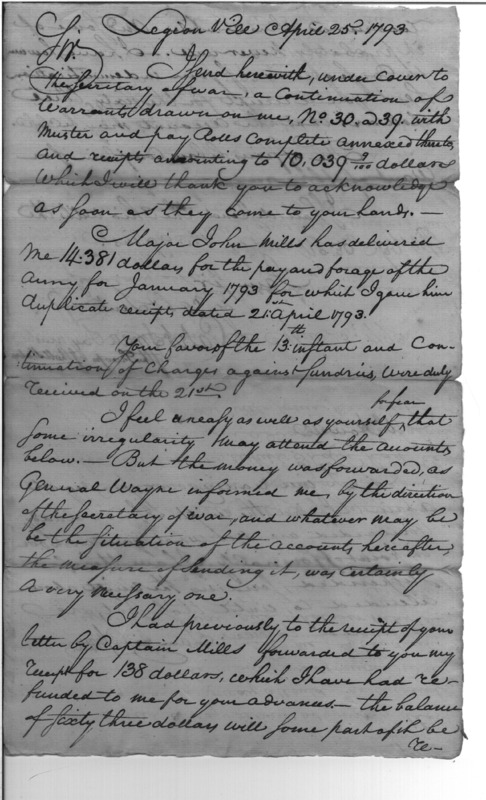 Legion Ville April 25th. 1793
Sir.
I send herewith, under cover to
the Secretary of war, a Continuation of
Warrants drawn on me, No. 30. a 39. with
Muster and pay Rolls complete annexed thereto,
and receipts amounting to 10,039 9/100 dollars
which I will thank you to acknowledge
as soon as they come to your hands. —
Major John Mills has delivered
me 14.381 dollars for the pay and forage of the
Army for January 1793 for which I gave him
duplicate receipts dated 21st. April 1793.
Your favor of the 13th. instant and Con-
tinuation of Charges against Sundries, were duly
received on the 21st.
I feel uneasy as well as yourself, for fear that
some irregularity may attend the accounts
below. — But the money was forwarded, as
General Wayne informed me, by the direction
of the Secretary of war, and whatever may be
be the situation of the accounts hereafter,
the measure of sending it, was certainly
a very necessary one.
I had previously to the receipt of your
letter by Captain Mills forwarded to you my
receipt for 138 dollars, which I have had re-
funded to me for your advances — the balance
of sixty three dollars will some part of it be
re-